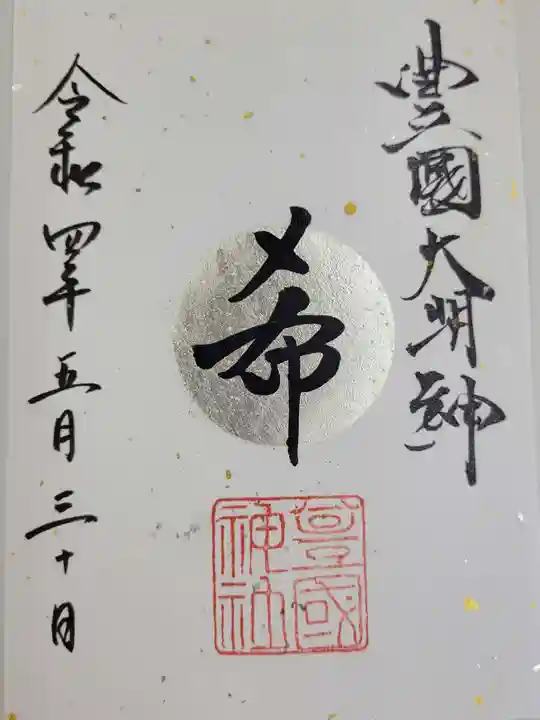 豊國大明神
希
豊國神社
令和四年五月三十日